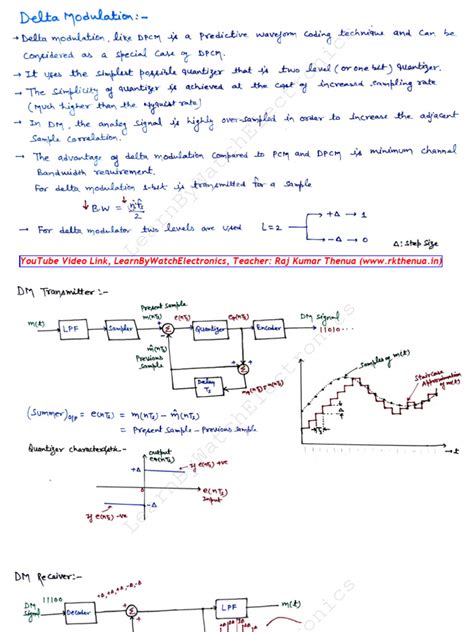 Delta Modulation:-
→ Delta modulation, like DPCM is a Predictive waveform coding technique and can be
considered as a special case of DPCM.
→ It uses the simplest possible quantizer that is two level (or one bit) quantizer.
→ The simplicity of quantizer is achieved at the cost of increased sampling rate
(Much higher than the nyquist rate)
→ In DM, the analog signal is highly over-sampled in order to increase the adjacent
Sample correlation.
→ The advantage of delta modulation compared to PCM and DPCM is minimum channel
Bandwidth requirement.
For delta modulation 1-bit is transmitted for a sample
↓B.W = nfs/2
→ For delta modulator two levels are used L=2
+Δ → 1
-Δ → 0
Δ: Step Size
YouTube Video Link, LearnByWatchElectronics, Teacher: Raj Kumar Thenua (www.rkthenua.in)
DM Transmitter:-
m(t)
LPF
Sampler
Present sample
m(nTs)
Σ
e(nTs)
Quantizer
eq(nTs)
Encoder
DM Signal
11010...
m̂(nTs)
Previous
sample
Delay
Ts
Σ
mq(nTs)
Samples of m(t)
Staircase
Approximation
of m(t)
Δ
Ts
t
(Summer)o/p = e(nTs) = m(nTs) - m̂(nTs)
= Present sample - Previous sample
Quantizer characteristic -
output
eq(nTs)
+Δ
If e(nTs) +ve
e(nTs)
Input
-Δ
If e(nTs) -ve
DM Receiver:-
DM
Signal
11100
Decoder
+Δ,+Δ,+Δ,-Δ,-Δ
Σ
LPF
m(t)
LearnByWatchElectronics
LearnByWatchElectronics